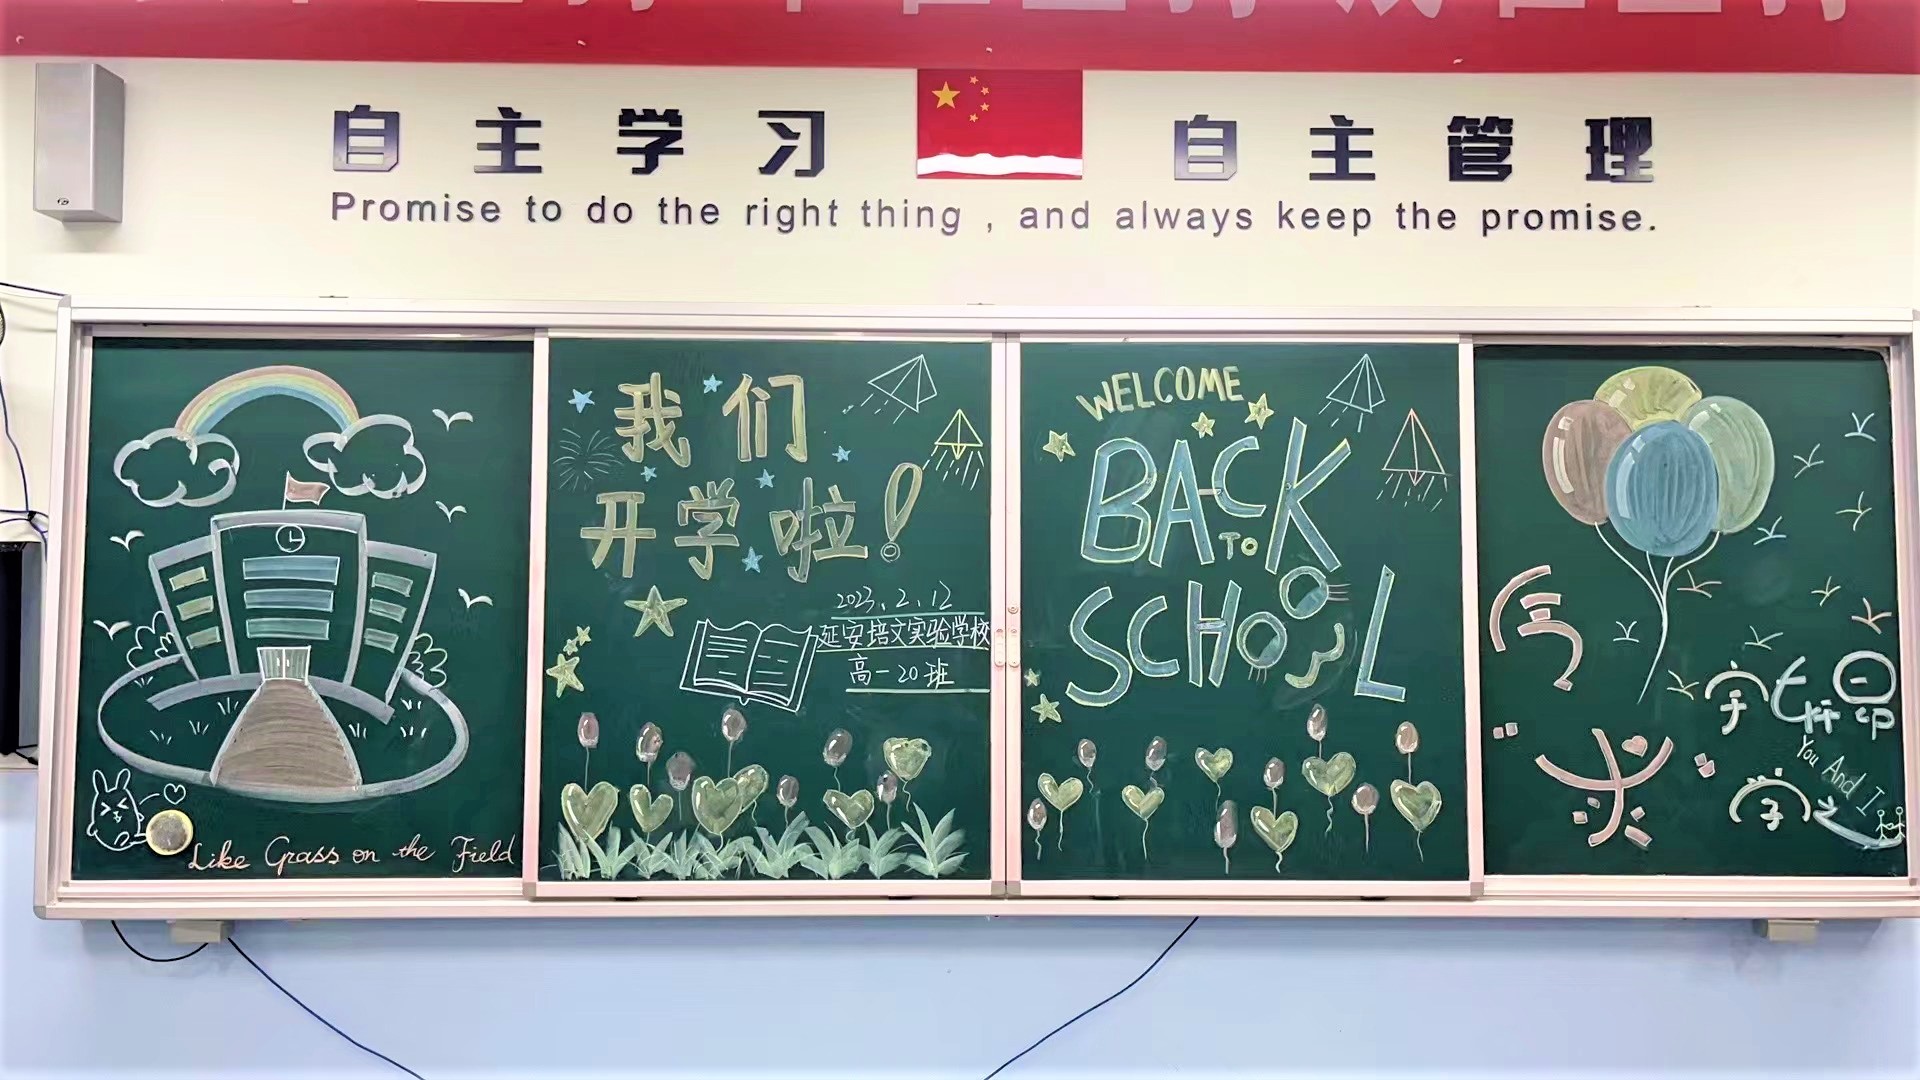 自主学习 自主管理
Promise to do the right thing , and always keep the promise.
Like Grass on the Field
我们
开学啦！
2023.2.12
延安培文实验学校
高一20班
WELCOME
BACK
TO
SCHOOL
You And I